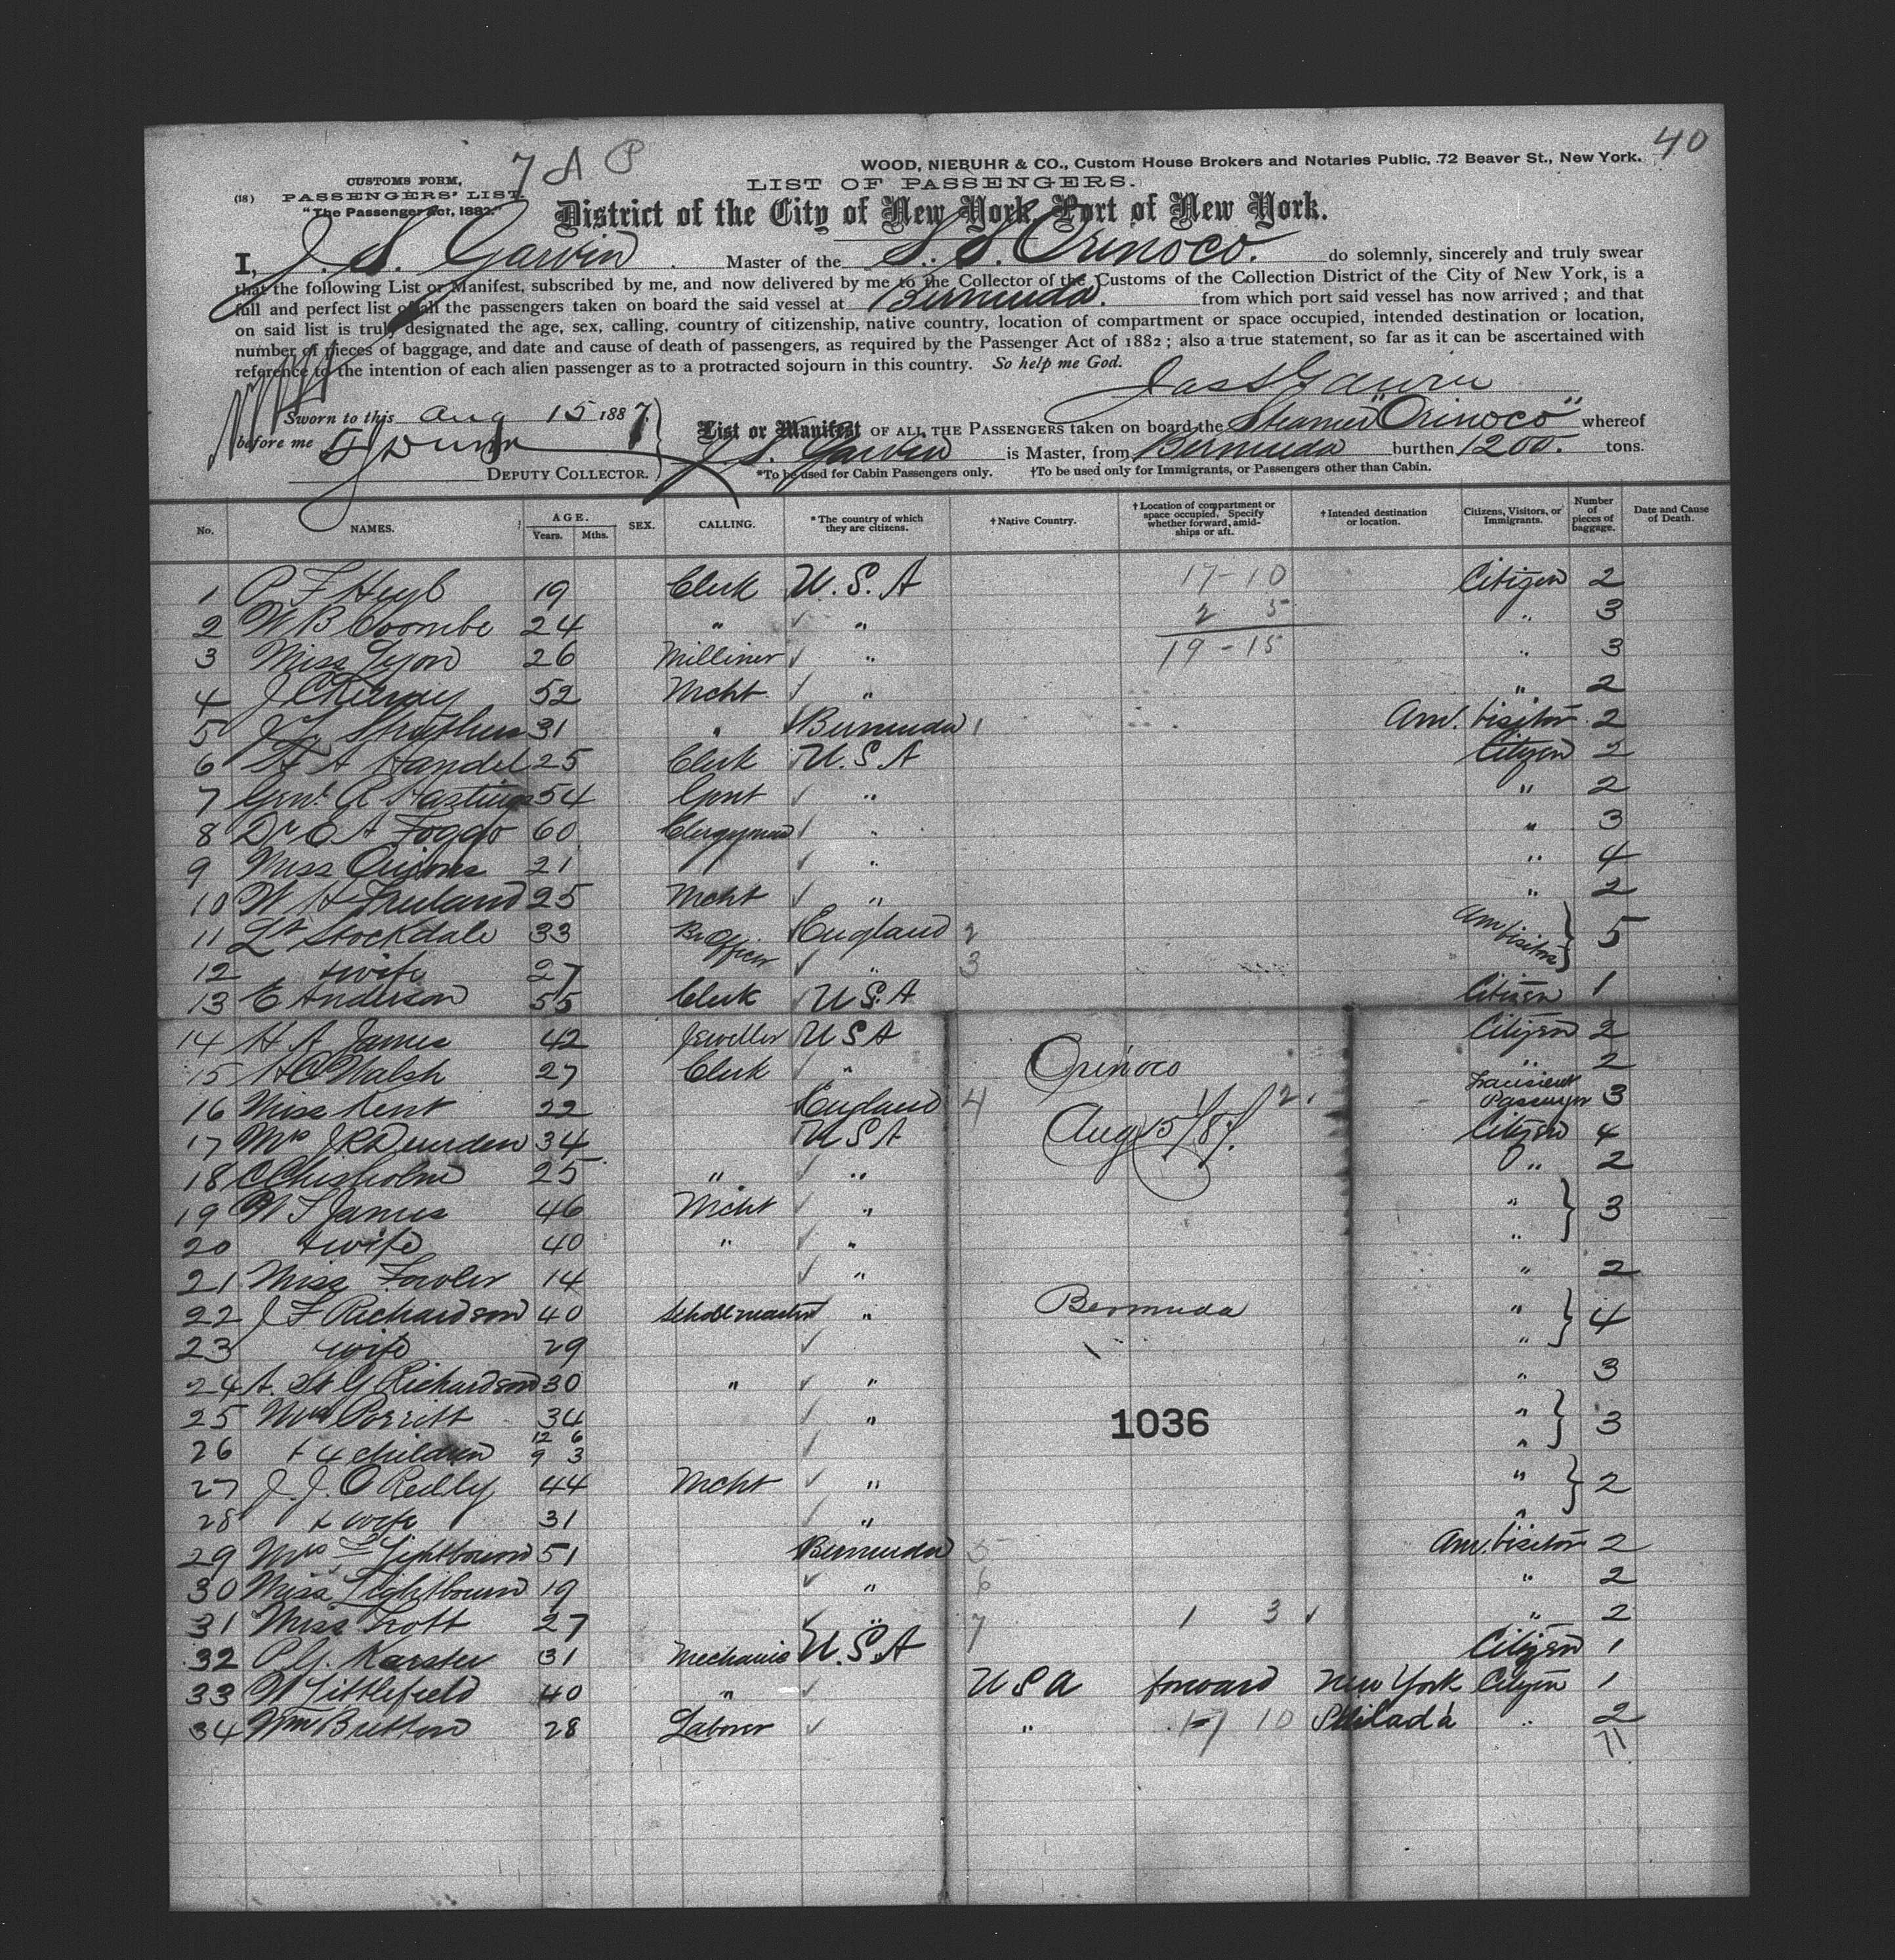 40
7 A P
WOOD, NIEBUHR & CO., Custom House Brokers and Notaries Public, 72 Beaver St., New York.
(18)
CUSTOMS FORM,
PASSENGERS' LIST
"The Passenger Act, 1882."
LIST OF PASSENGERS.
District of the City of New York, Port of New York.
I, J. S. Garvin Master of the S. S. Orinoco. do solemnly, sincerely and truly swear
that the following List or Manifest, subscribed by me, and now delivered by me to the Collector of the Customs of the Collection District of the City of New York, is a
full and perfect list of all the passengers taken on board the said vessel at Bermuda. from which port said vessel has now arrived; and that
on said list is truly designated the age, sex, calling, country of citizenship, native country, location of compartment or space occupied, intended destination or location,
number of pieces of baggage, and date and cause of death of passengers, as required by the Passenger Act of 1882; also a true statement, so far as it can be ascertained with
reference to the intention of each alien passenger as to a protracted sojourn in this country. So help me God.
Jas S Garvin
Sworn to this Aug 15 1887.
before me
DEPUTY COLLECTOR.
List or Manifest OF ALL THE PASSENGERS taken on board the Steamer "Orinoco" whereof
J. S. Garvin is Master, from Bermuda burthen 1200. tons.
*To be used for Cabin Passengers only. †To be used only for Immigrants, or Passengers other than Cabin.
No. NAMES. AGE. Years. Mths. SEX. CALLING. *The country of which they are citizens. †Native Country. †Location of compartment or space occupied. Specify whether forward, amidships or aft. †Intended destination or location. Citizens, Visitors, or Immigrants. Number of pieces of baggage. Date and Cause of Death.
1 P F Heyl 19 Clerk U.S.A 17-10 Citizen 2
2 W B Coombe 24 " " 2 5 " 3
3 Miss Lyon 26 Milliner " 19-15 " 3
4 J C 52 Mcht " " 2
5 31 " Bermuda 1 Am. Visitor 2
6 A Handel 25 Clerk U.S.A Citizen 2
7 Genl R Hastings 54 " " 2
8 Dr A Foggo 60 Clergyman " " 3
9 Miss 21 " " 4
10 W H Freeland 25 Mcht " " 2
11 Lt Stockdale 33 Br Officer England 2 Am Visitors } 5
12 + wife 27 " 3
13 E Anderson 55 Clerk U S. A Citizen 1
14 H A James 42 Jeweller U S A Orinoco Citizen 2
15 H C Walsh 27 Clerk " " 2
16 Miss Kent 22 England 4 Aug 15/87. 12. Transient Passenger 3
17 Mrs J R Dewrden 34 U S A Citizen 4
18 C Chisholm 25 " " " 2
19 W T James 46 Mcht " " } 3
20 + wife 40 " " "
21 Miss Fowler 14 " " 2
22 J F Richardson 40 Schoolmaster " Bermuda " } 4
23 wife 29 "
24 A. St G Richardson 30 " " " 3
25 Mrs Porritt 34 " 1036 " } 3
26 + 4 children 12 6 9 3 "
27 J. J. O Reilly 44 Mcht " " } 2
28 + wife 31 " "
29 Mrs Lightbourn 51 Bermuda 5 Am. Visitor 2
30 Miss Lightbourn 19 " 6 " 2
31 Miss Trott 27 " 7 1 3 " 2
32 P G. Karsten 31 Mechanic U.S.A Citizen 1
33 W Littlefield 40 " U S A forward New York Citizen 1
34 Wm Britton 28 Laborer " 17 10 Philad'a " 2
71